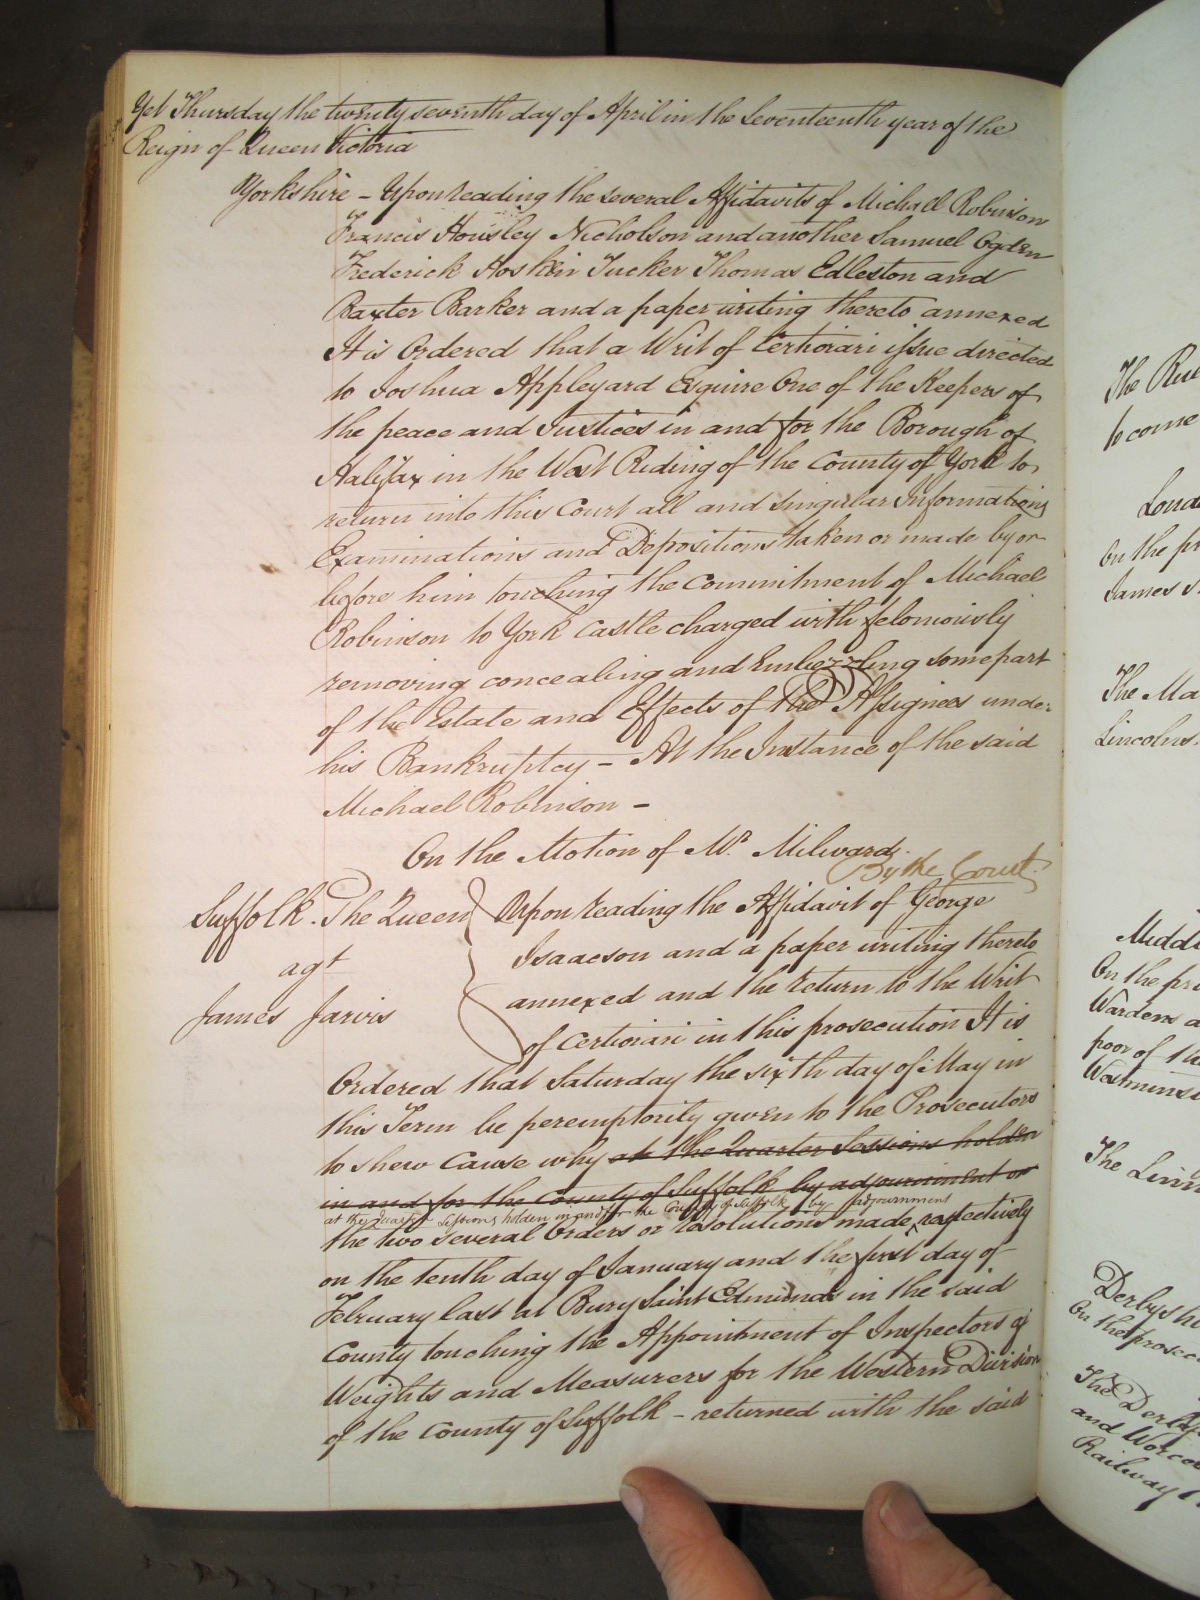 Yet Thursday the twenty seventh day of April in the Seventeenth year of the
Reign of Queen Victoria
Yorkshire – Upon reading the several Affidavits of Michael Robinson
Francis Housley Nicholson and another Samuel Ogden
Frederick Hoskin Tucker Thomas Edleston and
Baxter Barker and a paper writing thereto annexed
It is Ordered that a Writ of Certiorari issue directed
to Joshua Appleyard Esquire One of the Keepers of
the peace and Justices in and for the Borough of
Halifax in the West Riding of the County of York to
return into this Court all and singular Informations
Examinations and Depositions taken or made by or
before him touching the Commitment of Michael
Robinson to York Castle charged with feloniously
removing concealing and Embezzling some part
of the Estate and Effects of the Assignees under
his Bankruptcy – At the Instance of the said
Michael Robinson –
On the Motion of Mr. Milward.
By the Court
Suffolk. The Queen Upon reading the Affidavit of George
Isaacson and a paper writing thereto
agt
annexed and the return to the Writ
James Jarvis
of Certiorari in this prosecution It is
Ordered that Saturday the sixth day of May in
this Term be peremptorily given to the Prosecutors
to shew Cause why at the Quarter Sessions holden
in and for the County of Suffolk by adjournment or
at the Quarter Sessions holden in and for the County of Suffolk by adjournment
the two several Orders or Resolutions made respectively
on the tenth day of January and the first day of
February last at Bury Saint Edmunds in the said
County touching the Appointment of Inspectors of
Weights and Measures for the Western Division
of the County of Suffolk – returned with the said
The Rule
to come
London
On the pr
James
The Ma
Lincolns
Middl
On the pr
Wardens a
poor of the
Westmins
The Linn
Derbyshi
On the prosec
The Derby
and Worce
Railway